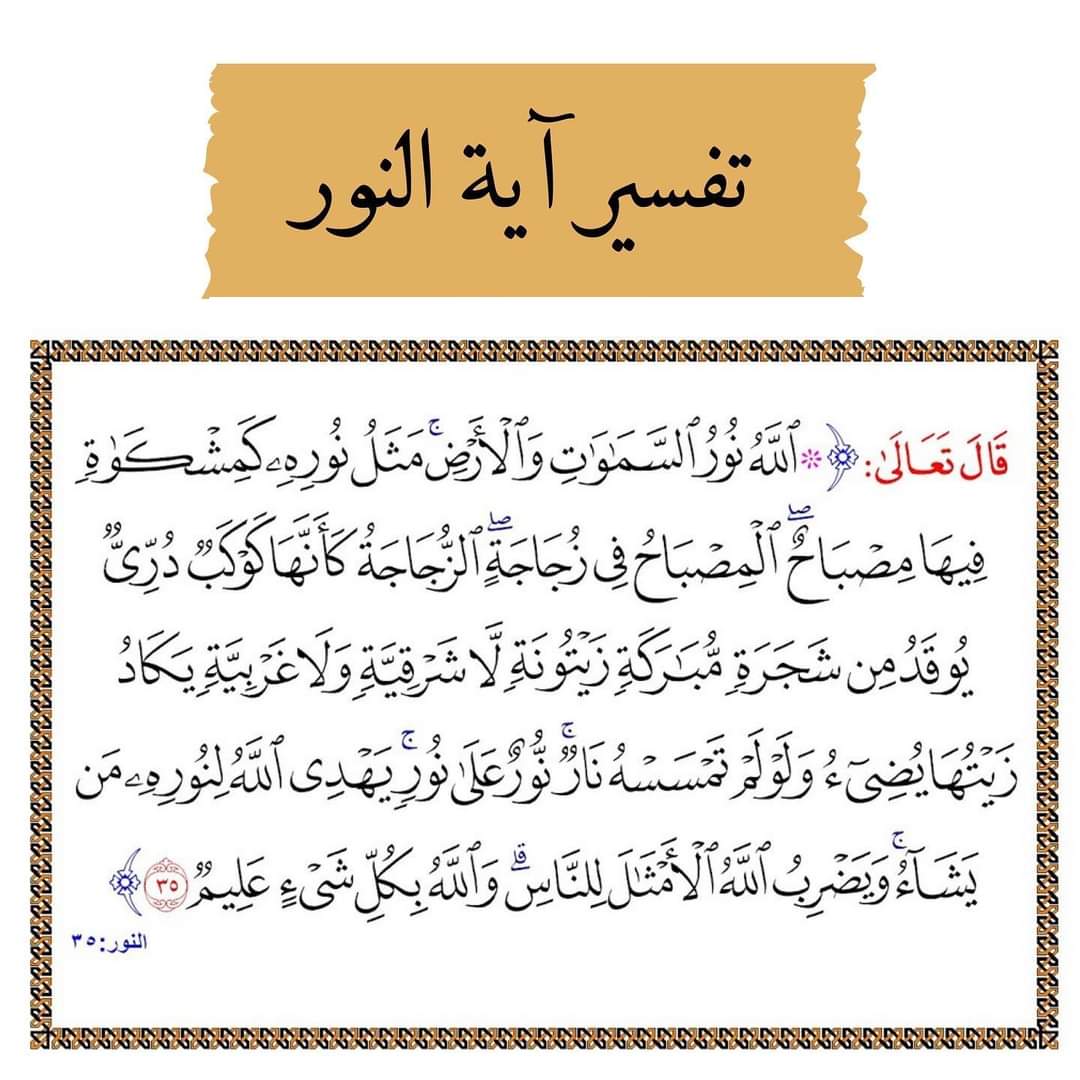 تفسير آية النور
قَالَ تَعَالَىٰ: ﴿۞ ٱللَّهُ نُورُ ٱلسَّمَـٰوَٰتِ وَٱلۡأَرۡضِۚ مَثَلُ نُورِهِۦ كَمِشۡكَوٰةٖ
فِيهَا مِصۡبَاحٌۖ ٱلۡمِصۡبَاحُ فِي زُجَاجَةٍۖ ٱلزُّجَاجَةُ كَأَنَّهَا كَوۡكَبٞ دُرِّيّٞ
يُوقَدُ مِن شَجَرَةٖ مُّبَٰرَكَةٖ زَيۡتُونَةٖ لَّا شَرۡقِيَّةٖ وَلَا غَرۡبِيَّةٖ يَكَادُ
زَيۡتُهَا يُضِيٓءُ وَلَوۡ لَمۡ تَمۡسَسۡهُ نَارٞۚ نُّورٌ عَلَىٰ نُورٖۚ يَهۡدِي ٱللَّهُ لِنُورِهِۦ مَن
يَشَآءُۚ وَيَضۡرِبُ ٱللَّهُ ٱلۡأَمۡثَٰلَ لِلنَّاسِۗ وَٱللَّهُ بِكُلِّ شَيۡءٍ عَلِيمٞ ٣٥﴾
النور: ٣٥